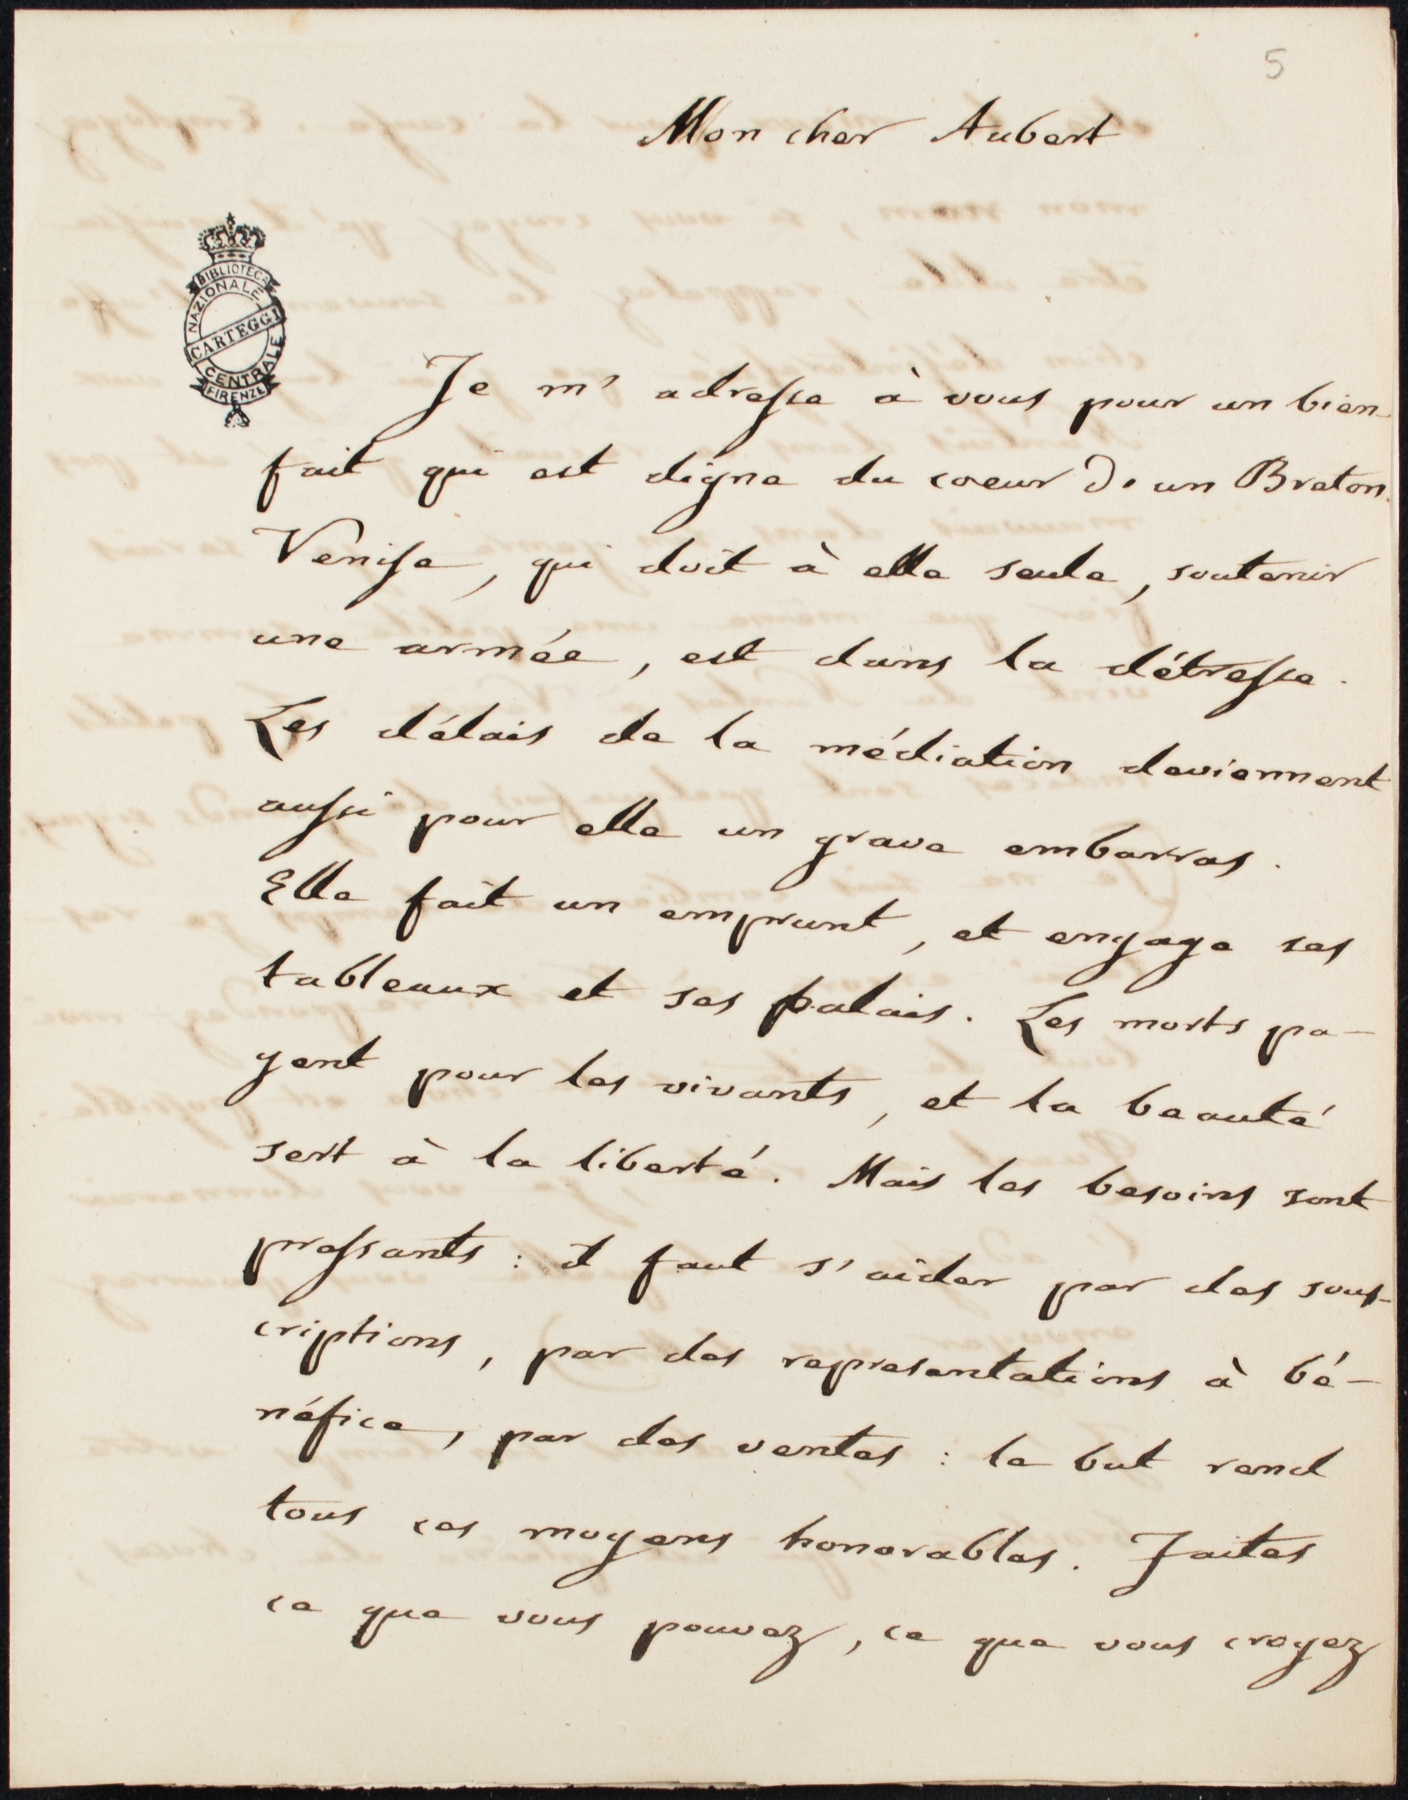 5
Mon cher Aubert
BIBLIOTECA
NAZIONALE
CARTEGGI
CENTRALE
FIRENZE
Je m' adresse à vous pour un bien-
fait qui est digne du coeur d'un Breton.
Venise, qui doit à elle seule, soutenir
une armée, est dans la détresse.
Les délais de la médiation deviennent
aussi pour elle un grave embarras.
Elle fait un emprunt, et engage ses
tableaux et ses palais. Les morts pa-
yent pour les vivants, et la beauté
sert à la liberté. Mais les besoins sont
pressants: il faut s'aider par des sous-
criptions, par des representations à bé-
néfice, par des ventes: le but rend
tous ces moyens honorables. Faites
ce que vous pouvez, ce que vous croyez